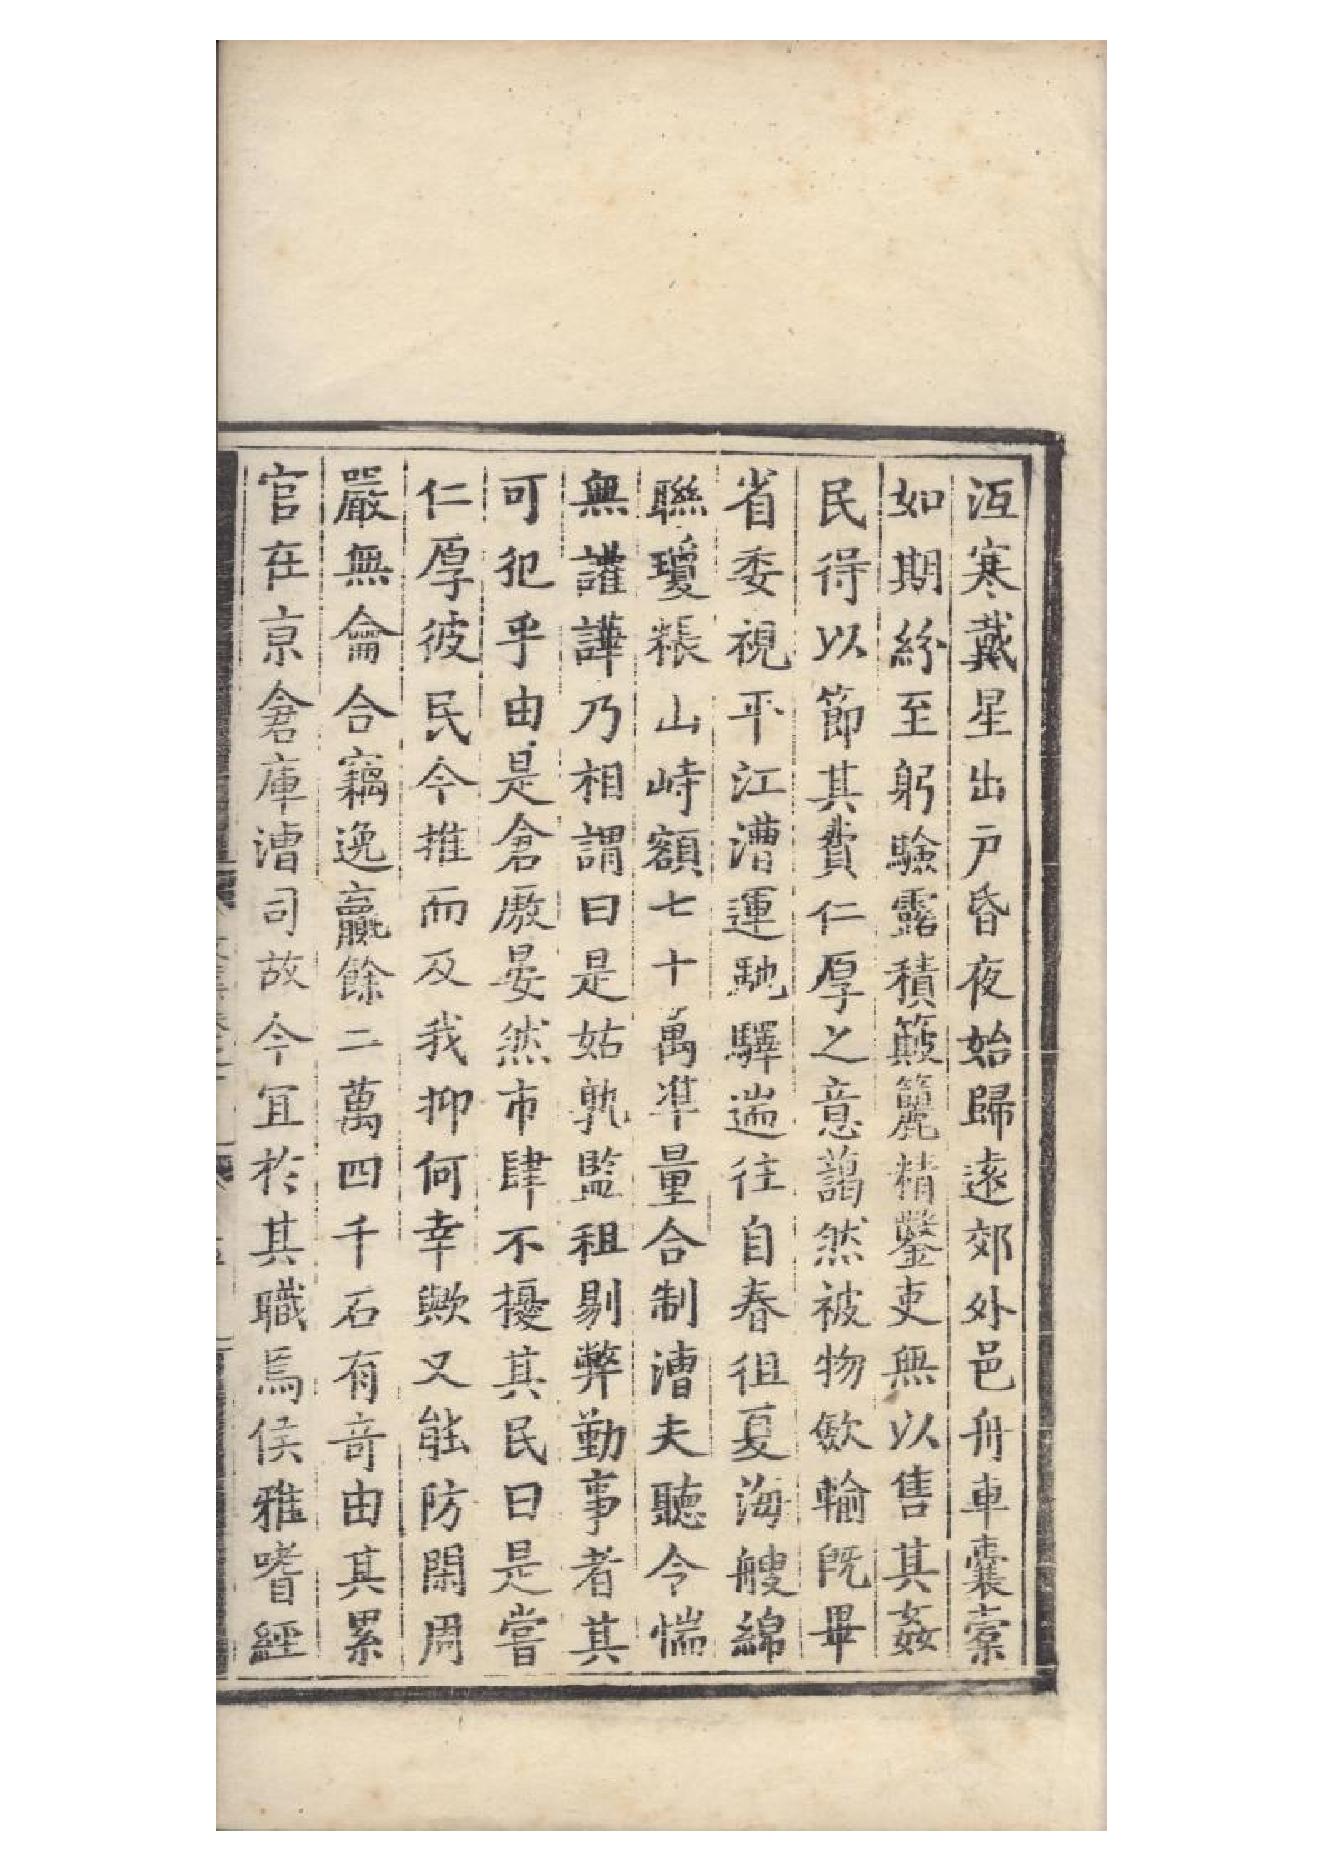 沍寒戴星出戶昏夜始歸遠郊外邑舟車囊橐
如期紛至躬驗露積簸簏精鑿吏無以售其姦
民得以節其費仁厚之意藹然被物歛輸既畢
省委視平江漕運馳驛遄往自春徂夏海艘綿
聯瓊粻山峙額七十萬準量合制漕夫聽令惴
無讙譁乃相謂曰是姑孰監租剔弊勤事者其
可犯乎由是倉廒晏然市肆不擾其民曰是嘗
仁厚彼民今推而及我抑何幸歟又能防閑周
嚴無龠合竊逸羸餘二萬四千石有奇由其累
官在京倉庫漕司故今冝於其職焉侯雅嗜經